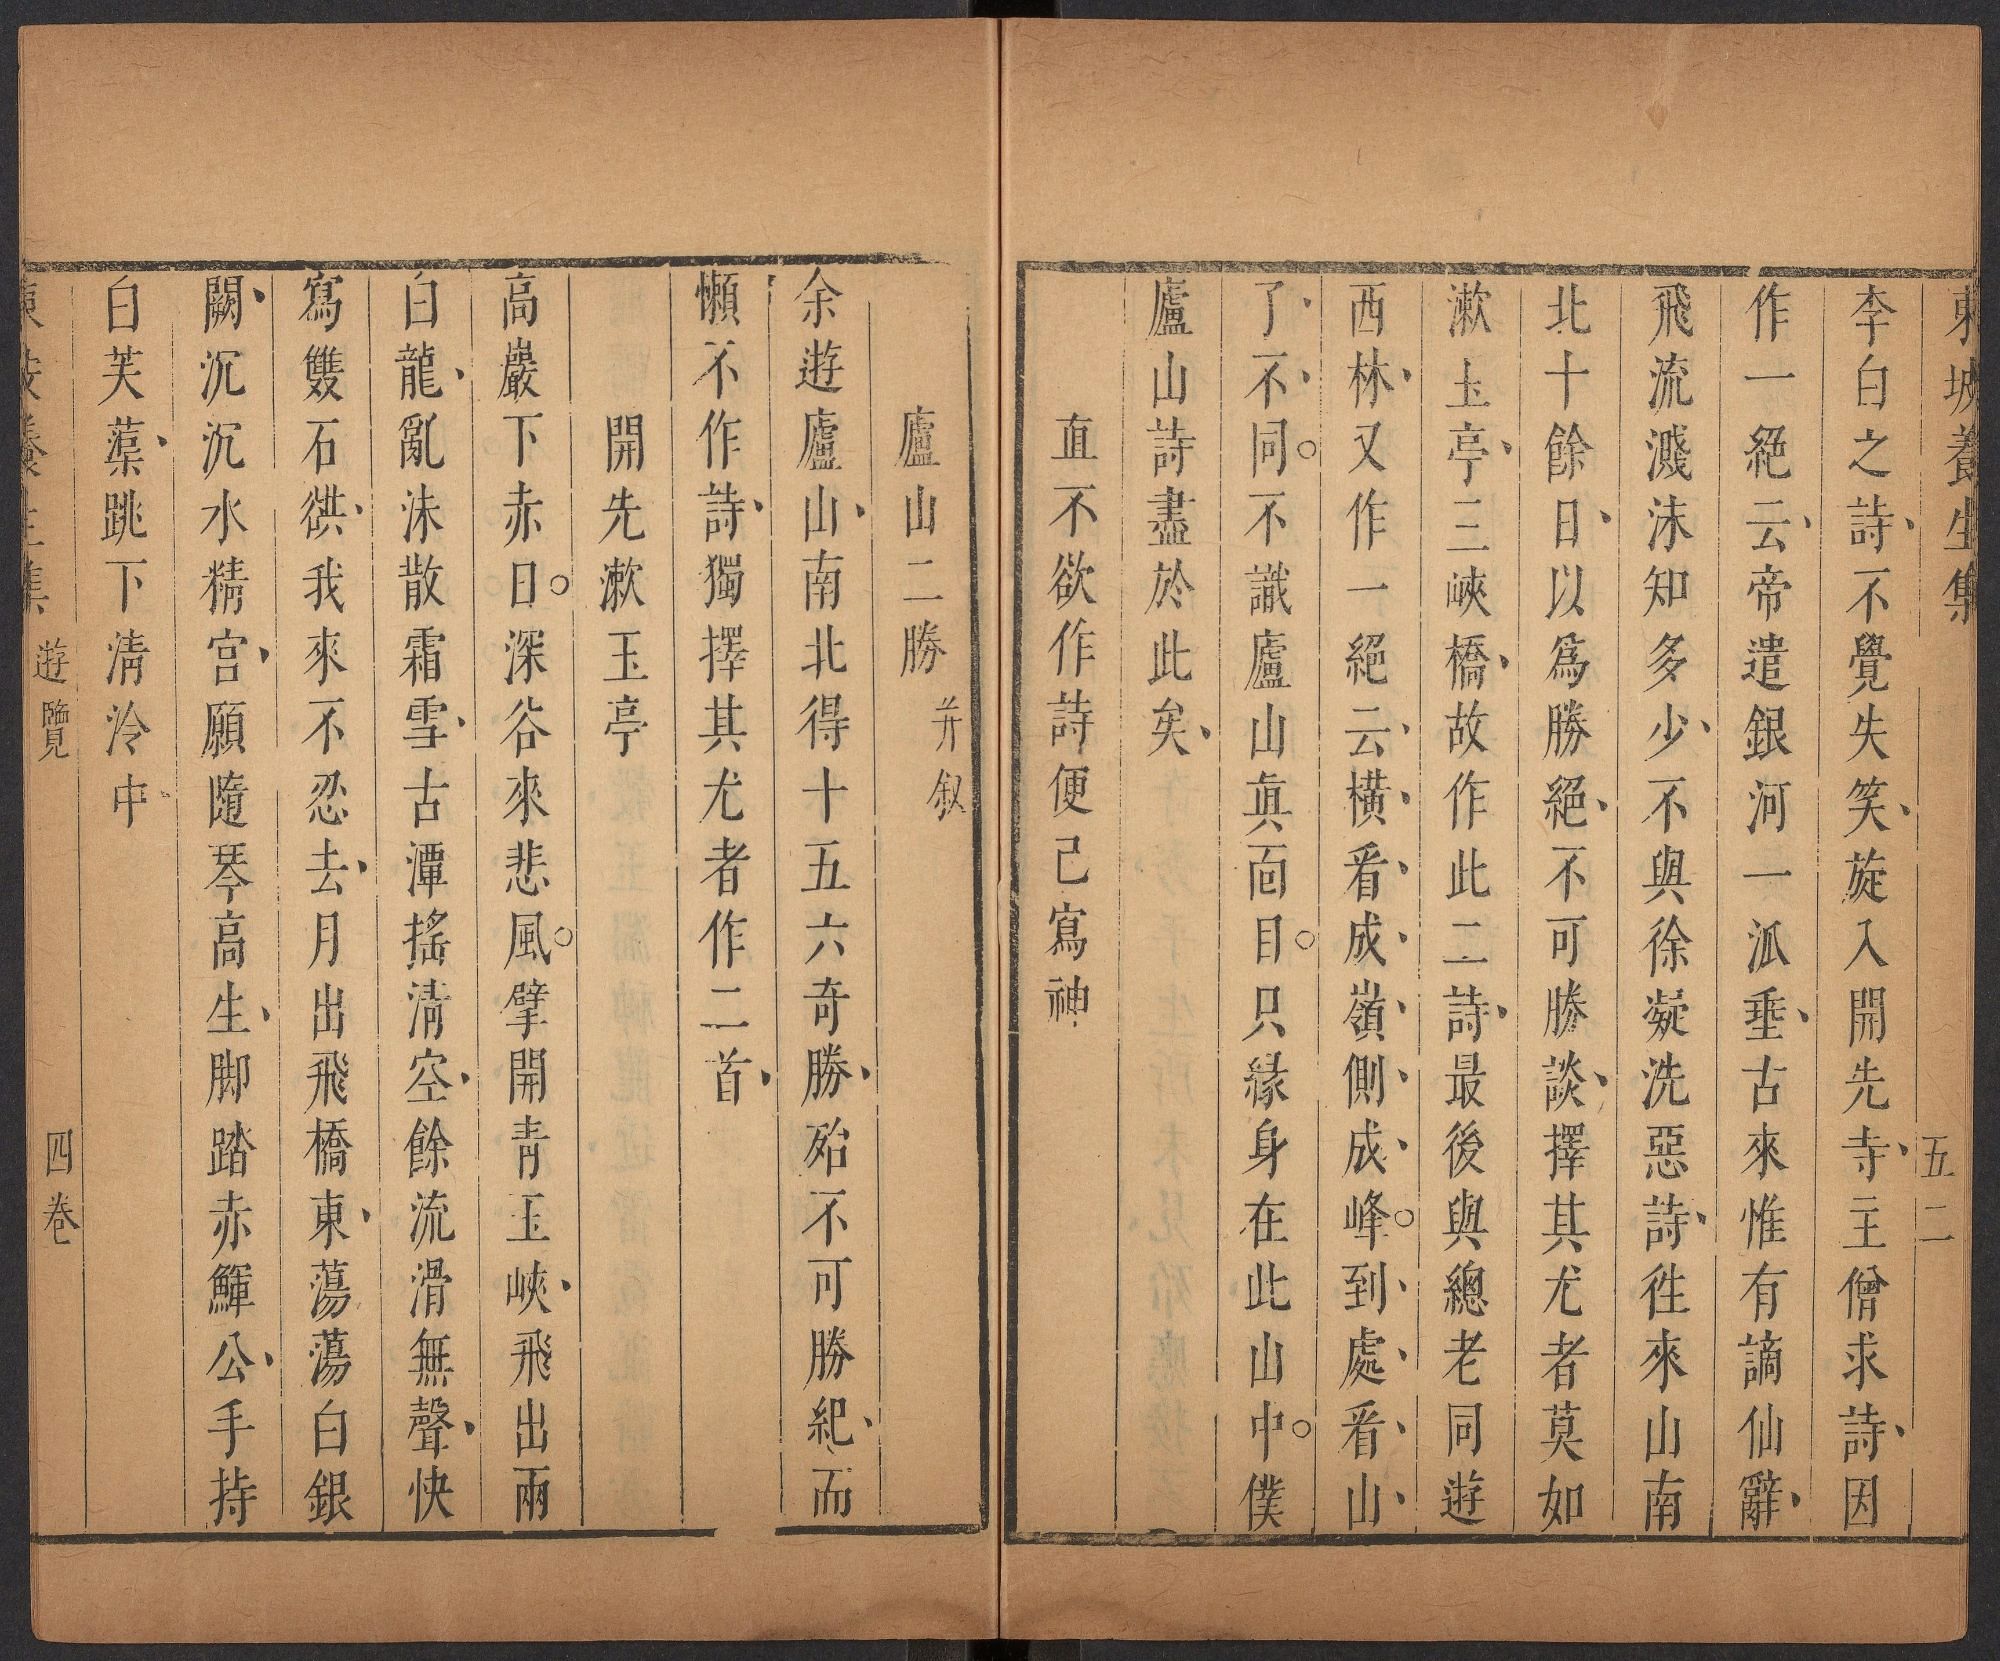 東坡養生集
五二
李白之詩、不覺失笑、旋入開先寺、主僧求詩、因
作一絕云、帝遣銀河一派垂、古來惟有謫仙辭、
飛流濺沫知多少、不與徐凝洗惡詩、徃來山南
北十餘日、以爲勝絕、不可勝談、擇其尤者莫如
漱玉亭、三峽橋、故作此二詩、最後與總老同遊
西林、又作一絕云、橫看成嶺側成峰。到處看山
了不同。不識廬山眞面目。只緣身在此山中。僕
廬山詩盡於此矣、
直不欲作詩便已寫神
廬山二勝 并叙
余遊廬山、南北得十五六奇勝、殆不可勝紀、而
懶不作詩、獨擇其尤者作二首、
開先漱玉亭
高巖下赤日。深谷來悲風。擘開青玉峽、飛出兩
白龍、亂沫散霜雪、古潭搖清空、餘流滑無聲、快
寫雙石谼、我來不忍去、月出飛橋東、蕩蕩白銀
闕、沉沉水精宮、願隨琴高生、脚踏赤鯶公、手持
白芙蕖、跳下清泠中
東坡養生集 遊覽 四卷